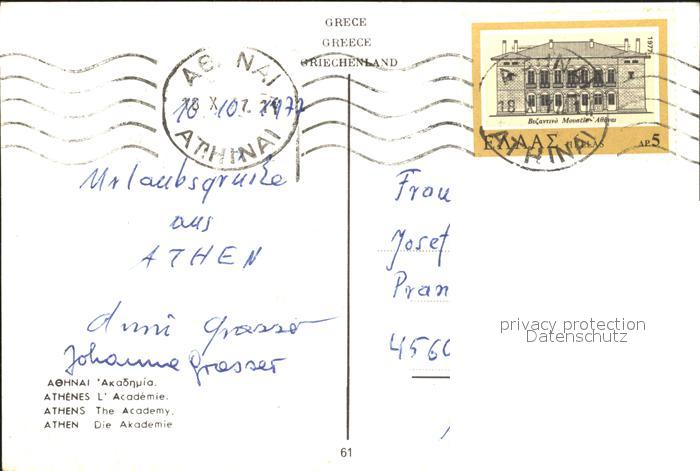 GRECE
GREECE
GRIECHENLAND
ΑΘΗΝΑΙ
ATHINAI
18.10.1977
1977
Βυζαντινὸ Μουσεῖο Ἀθῆναι
ΕΛΛΑΣ HELLAS ΔΡ. 5
ATHINAI
Urlaubsgrüße
aus
ATHEN
Grasser
Johanna Grasser
Frau
Josef
Pran
4560
ΑΘΗΝΑΙ Ἀκαδημία.
ATHÈNES L' Académie.
ATHENS The Academy.
ATHEN Die Akademie
61
privacy protection
Datenschutz